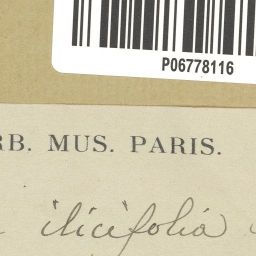 P06778116
RB. MUS. PARIS.
ilicifolia